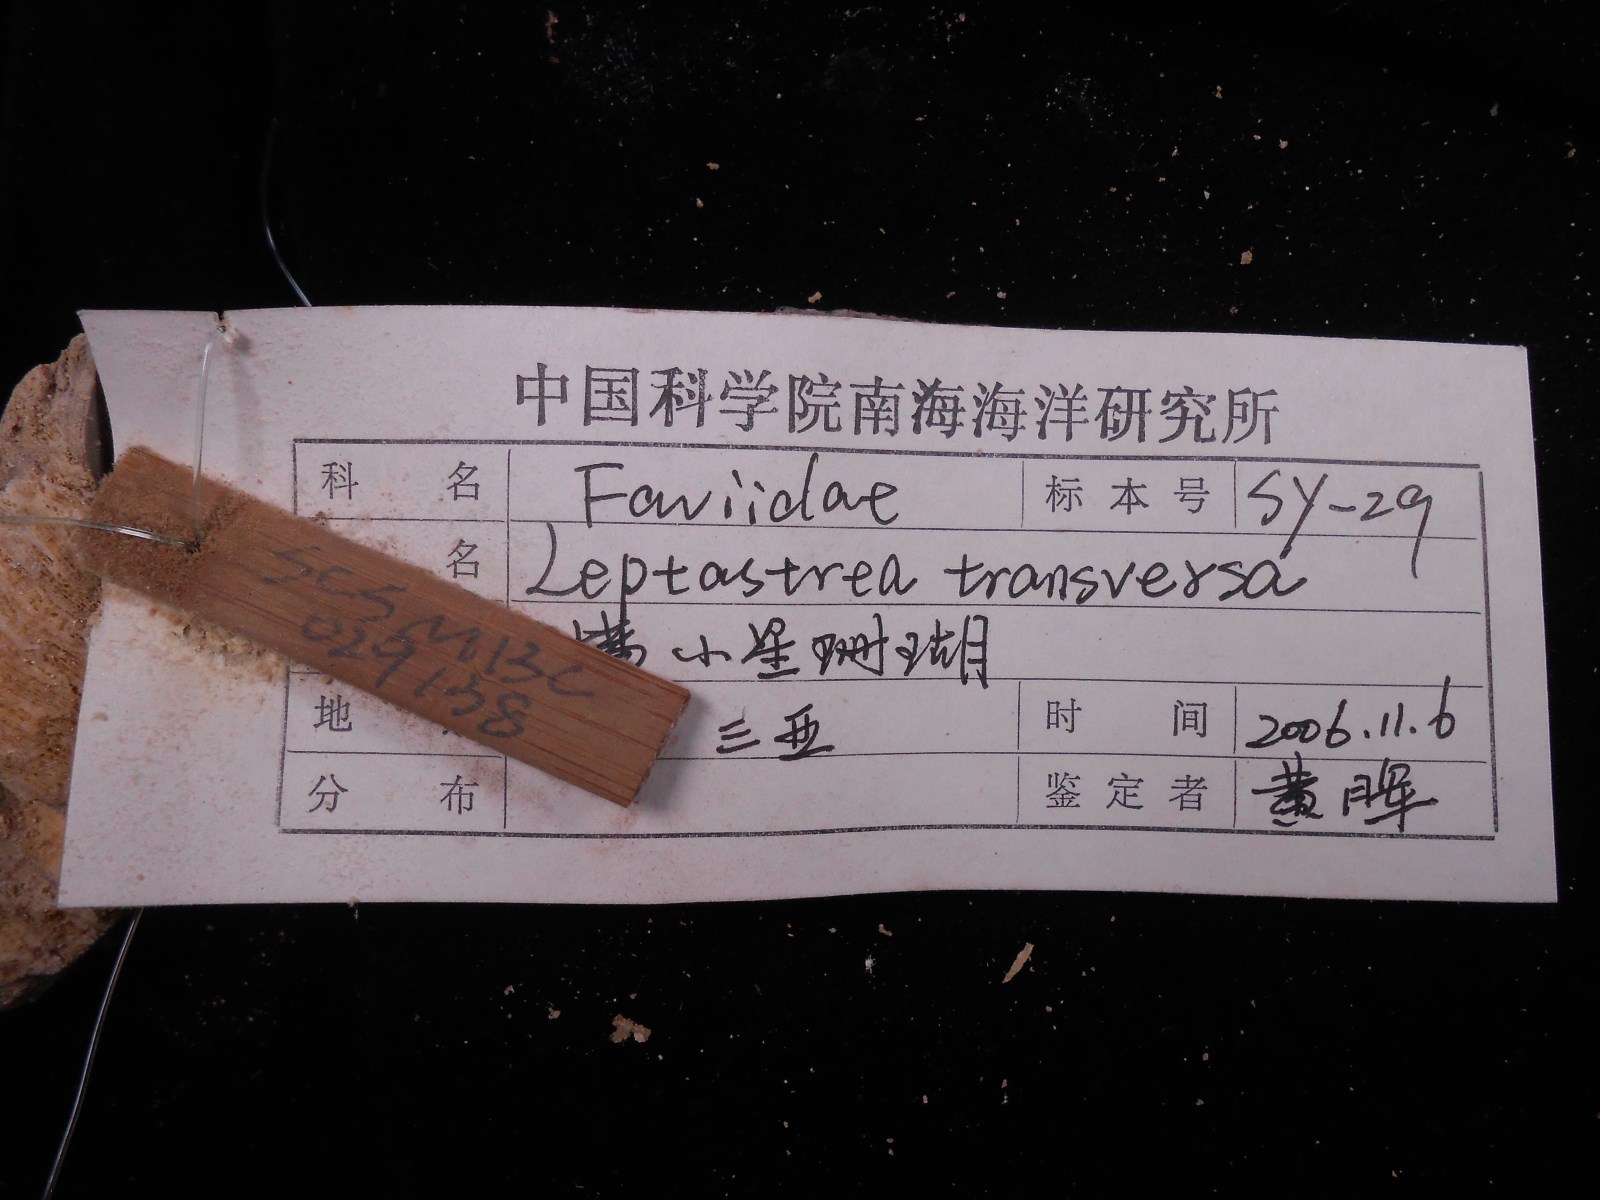 中国科学院南海海洋研究所
科 名 Faviidae 标本号 SY-29
名 Leptastrea transversa
小星珊瑚
地 三亚 时 间 2006.11.6
分 布 鉴定者 黄晖
SCSMBC
029138